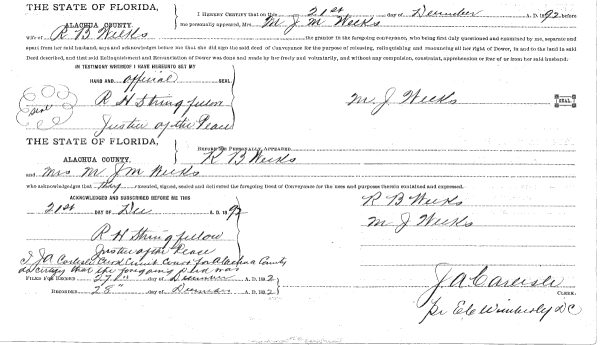 THE STATE OF FLORIDA,
ALACHUA COUNTY.
I HEREBY CERTIFY that on this 21st day of December A. D. 1892 before
me personally appeared, Mrs. M. J. M. Weeks
wife of R B Weeks the grantor in the foregoing conveyance, who being first duly questioned and examined by me, separate and
apart from her said husband, says and acknowledges before me that she did sign the said deed of Conveyance for the purpose of releasing, relinquishing and renouncing all her right of Dower, in and to the land in said
Deed described, and that said Relinquishment and Renunciation of Dower was done and made by her freely and voluntarily, and without any compulsion, constraint, apprehension or fear of or from her said husband:
IN TESTIMONY WHEREOF I HAVE HEREUNTO SET MY
HAND AND official SEAL
Seal
R H Stringfellow
Justice of the Peace
M. J Weeks
SEAL
THE STATE OF FLORIDA,
ALACHUA COUNTY.
BEFORE ME PERSONALLY APPEARED
R B Weeks
and Mrs M J M Weeks
who acknowledges that they executed, signed, sealed and delivered the foregoing Deed of Conveyance for the uses and purposes therein explained and expressed.
ACKNOWLEDGED AND SUBSCRIBED BEFORE ME THIS
21st DAY OF Dec A. D. 1892
R B Weeks
M J Weeks
R H Stringfellow
Justice of the Peace
I J A Carlisle Clerk Circuit Court for Alachua County
do certify that the foregoing deed was
FILED FOR RECORD 27th day of December A. D. 1892
RECORDED 28" day of December A. D. 1892
J A Carlisle
CLERK.
pr E C Wimberly DC